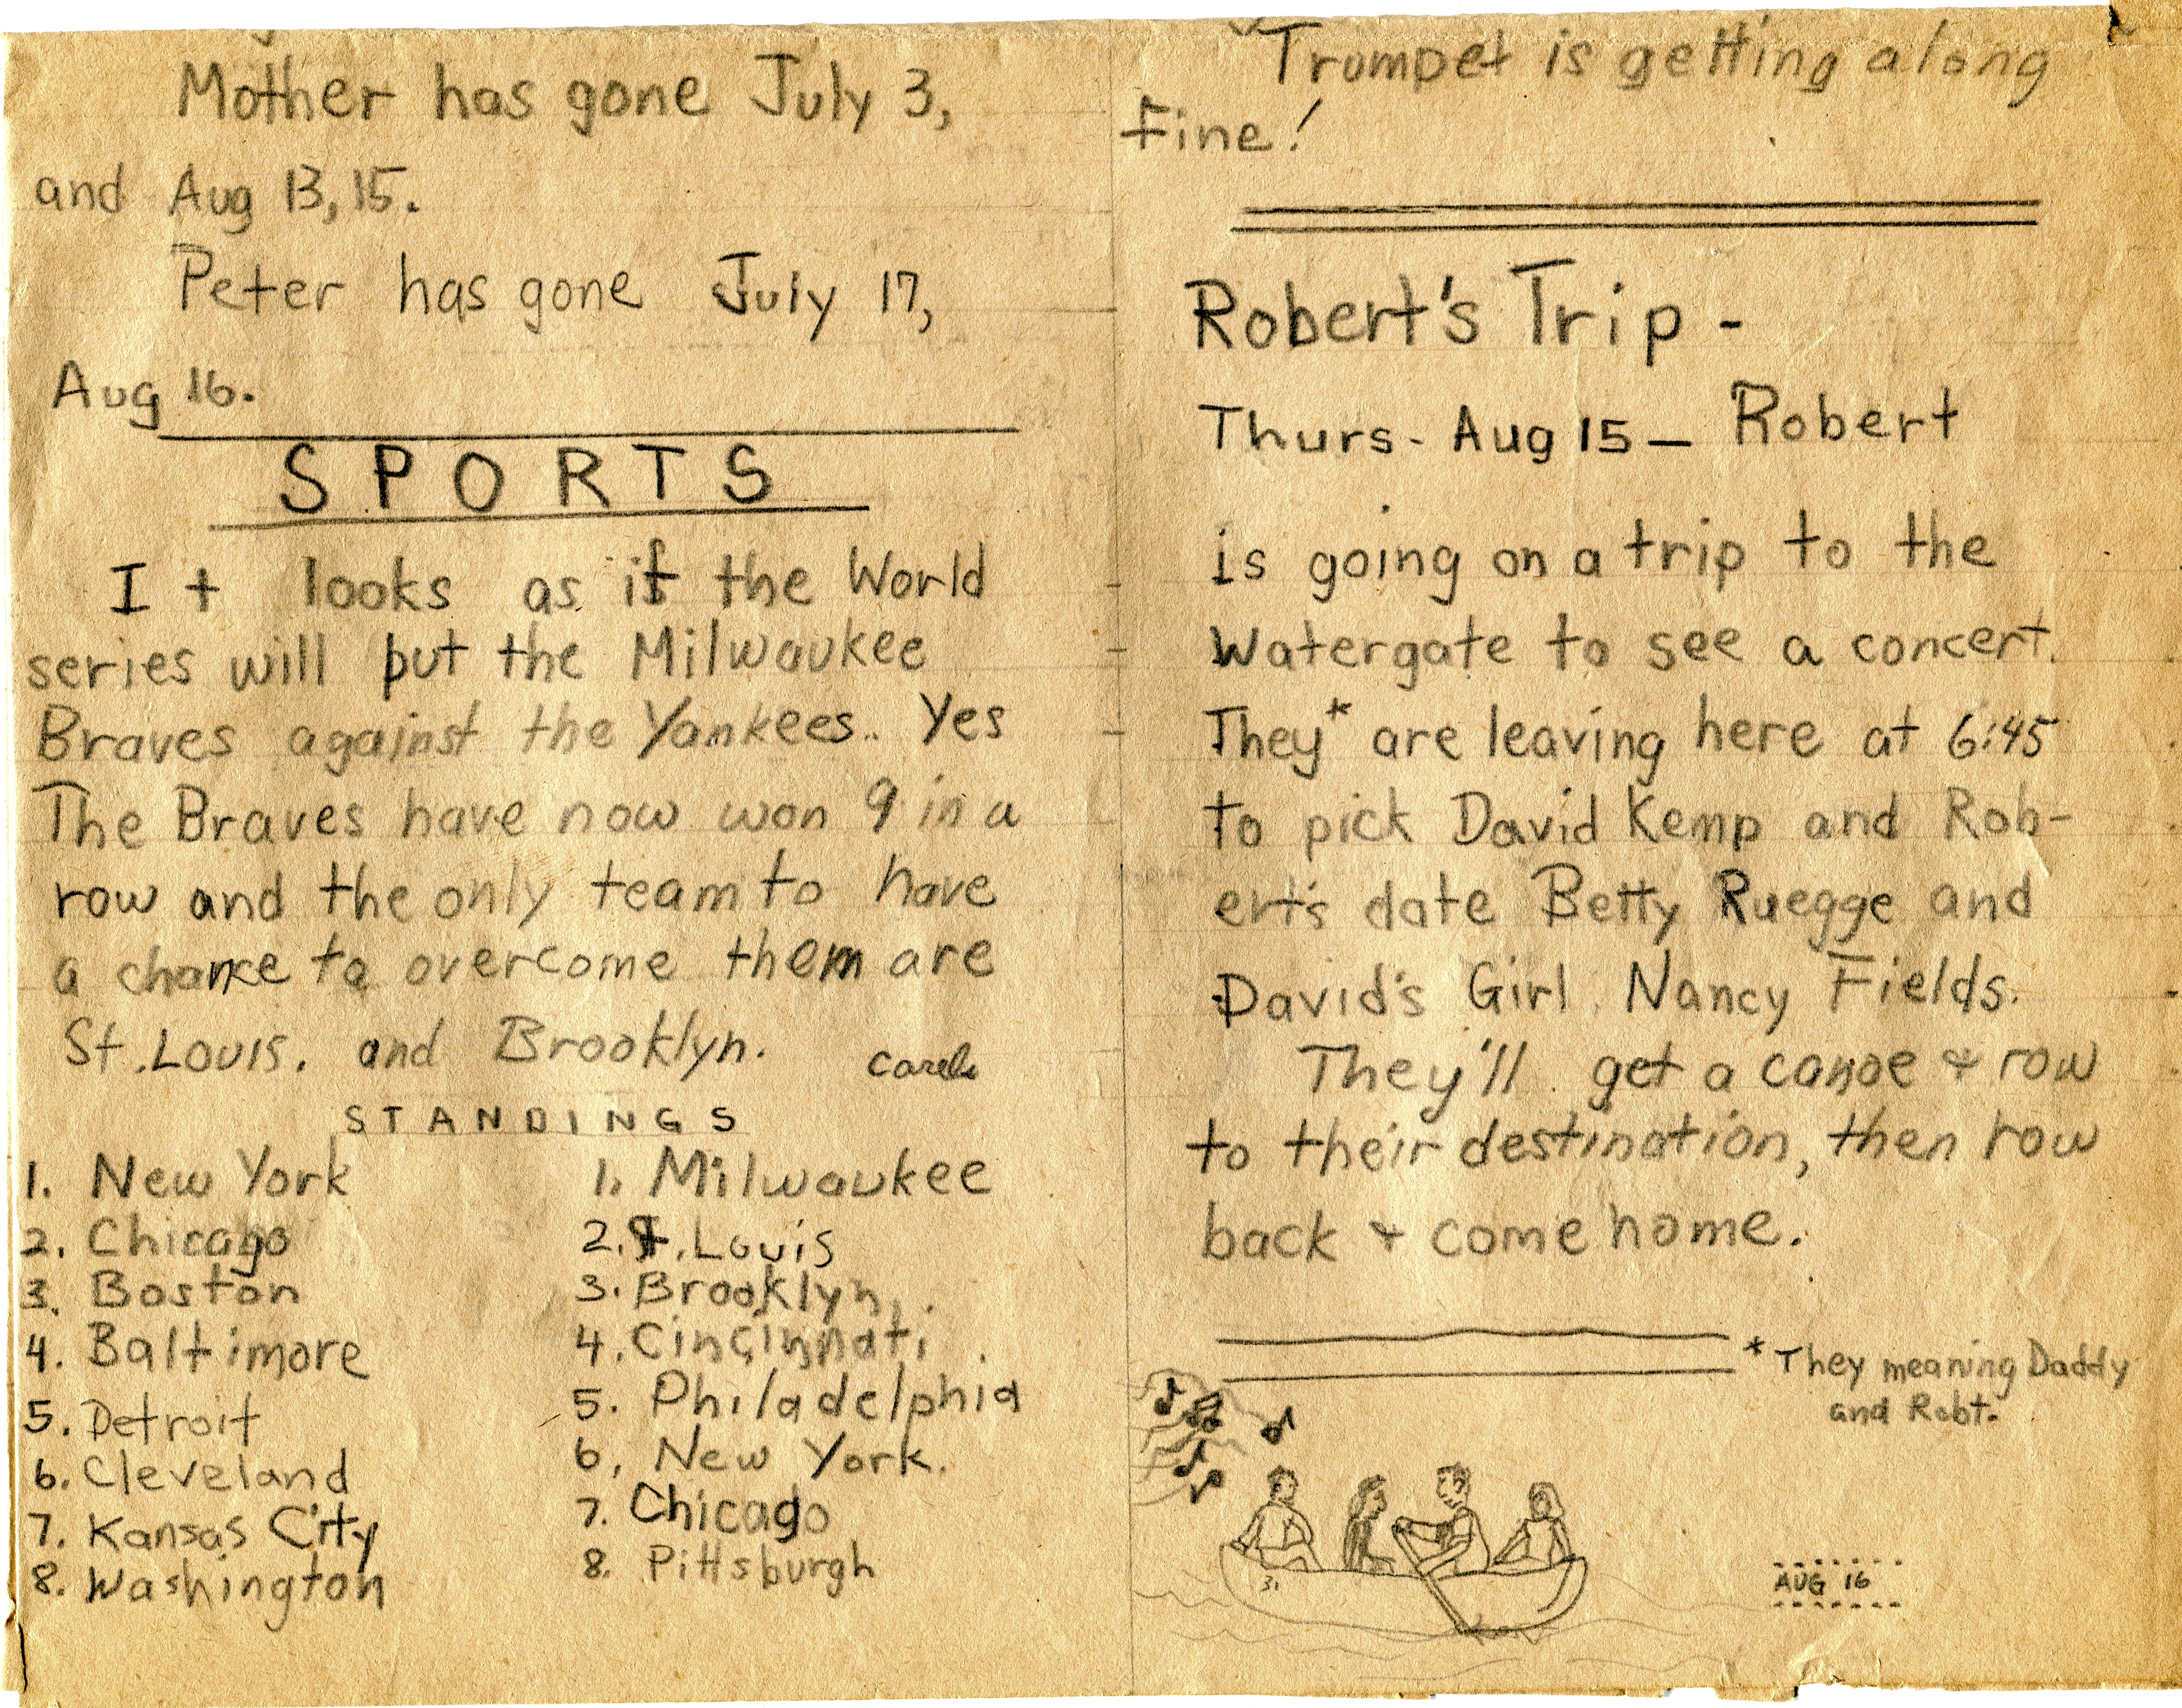 Mother has gone July 3,
and Aug 13, 15.
Peter has gone July 17,
Aug 16.
SPORTS
It looks as if the World
series will put the Milwaukee
Braves against the Yankees.. Yes
The Braves have now won 9 in a
row and the only team to have
a chance to overcome them are
St. Louis. and Brooklyn.
STANDINGS
1. New York
2. Chicago
3. Boston
4. Baltimore
5. Detroit
6. Cleveland
7. Kansas City
8. Washington
1. Milwaukee
2. St. Louis
3. Brooklyn
4. Cincinnati
5. Philadelphia
6, New York.
7. Chicago
8. Pittsburgh
Trumpet is getting along
fine!
Robert's Trip -
Thurs- Aug 15 — Robert
is going on a trip to the
Watergate to see a concert.
They* are leaving here at 6:45
to pick David Kemp and Rob-
ert's date Betty Ruegge and
David's Girl Nancy Fields.
They'll get a canoe & row
to their destination, then row
back & come home.
* They meaning Daddy
and Robt.
31
AUG 16